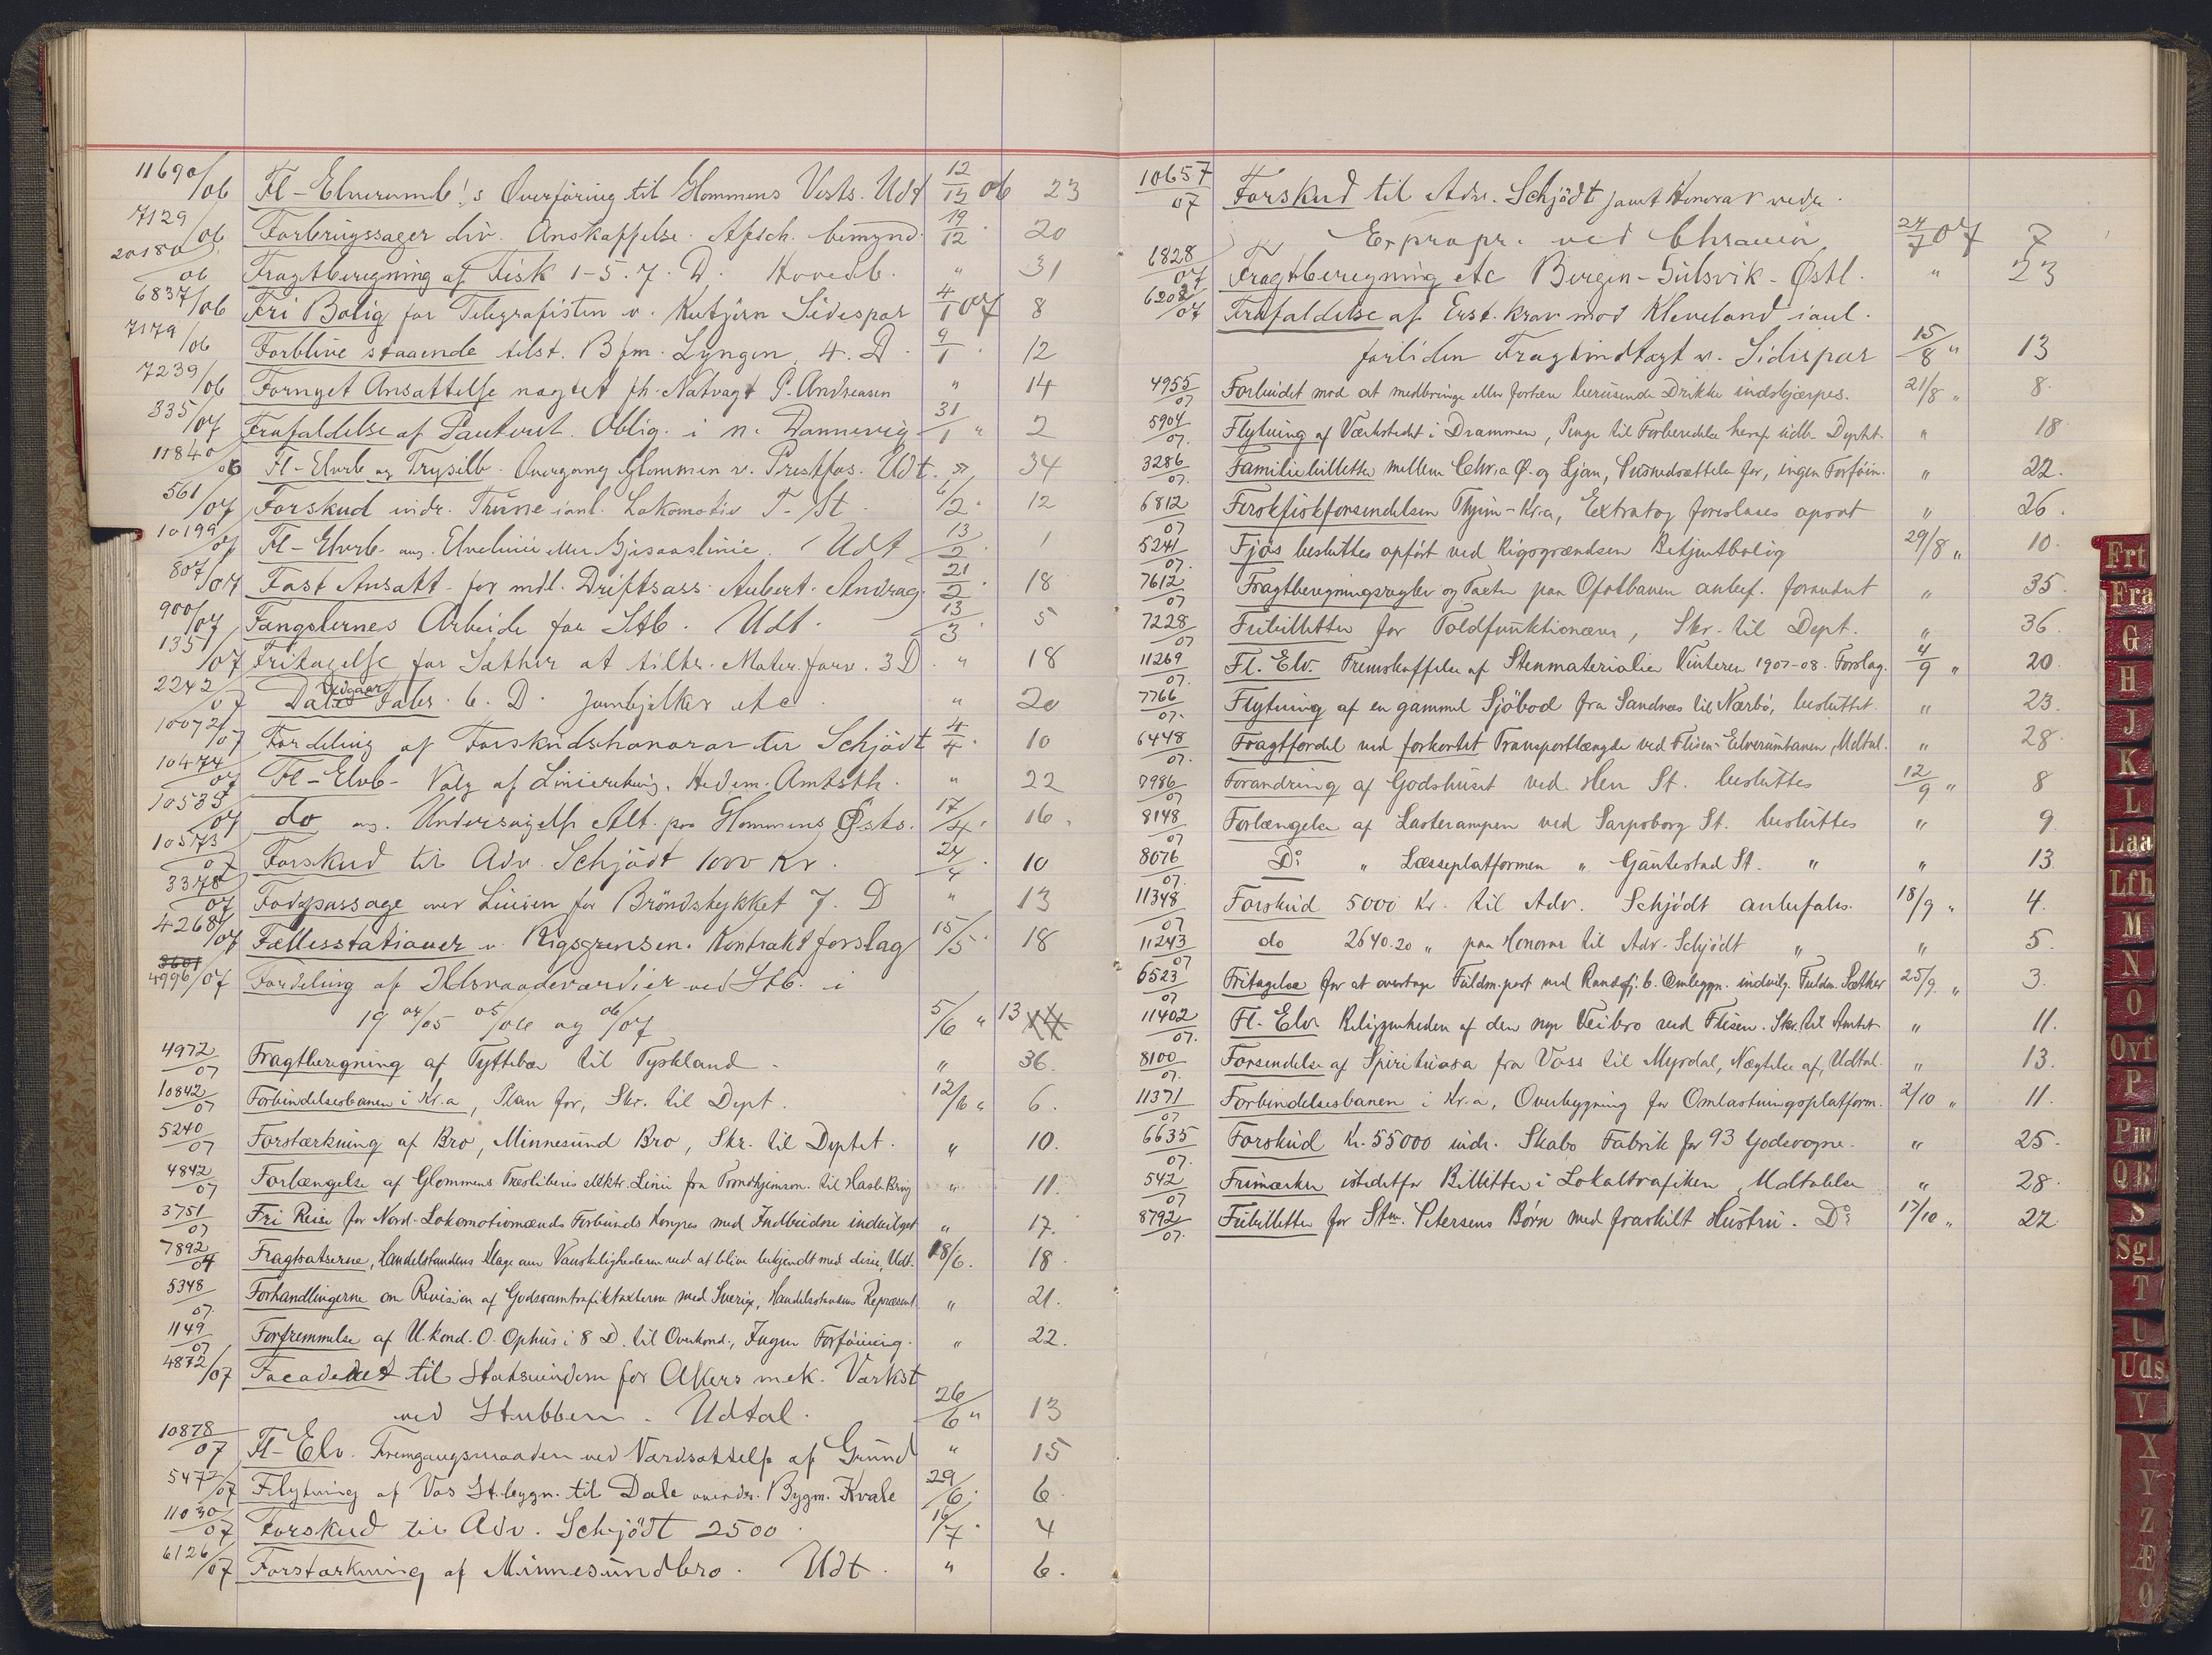 11690/06 Fl-Elverumb's Overføring til Glommens Vests. Udt 12/12 06 23
7129/06 Forbrugssager div. Anskaffelse. Afsch. bemynd. 19/12 20
20180/06 Fragtberegning af Fisk 1-5. 7. D. Hovedb. " 31
6837/06 Fri Bolig for Telegrafisten v. Sidespor 4/1 07 8
7179/06 Forblive staaende tilst. Bfm. Lyngen, 4. D. 9/1 12
7239/06 Fornyet Ansættelse nægtet fh. Natvagt P. Andreasen " 14
335/07 Frafaldelse af Panteret. Oblig. i n. Dannevig 31/1 " 2
11840/06 Fl-Elvrb og Trysilb. Overgang Glommen v. Prestfos. Udt. " 34
561/07 Forskud indr. Thune ianl. Lokomotiv T-St. 6/2 12
10199/07 Fl-Elvrb. ang. Elvelinie eller Gjesaaslinie. Udt 13/2 1
807/07 Fast Ansætt. for mdl. Driftsass. Aubert. Andrag. 21/2 18
900/07 Fangslernes Arbeide for Stb. Udt. 13/3 5
1351/07 Fritagelse for Sæther at tiltr. Mater.forv. 3 D. " 18
2242/07 Dale Fabr. 6. D. Jernbjelker etc " 20
10072/07 Fordeling af Forskudshonorar til Schjødt 4/4 10
10474/07 Fl-Elvb- Valg af Linieretning. Hedem. Amtsth. " 22
10535/07 do ang. Undersøgelse Alt. paa Glommens Østs. 17/4 16
10573/07 Forskud til Adv. Schjødt 1000 Kr. 24/4 10
3378/07 Fodpassage over Linien for Brøndstykket 7. D " 13
4268/07 Fællesstationer v. Rigsgrænsen. Kontraktforslag 15/5 18
3601
4996/07 Fordeling af Ildsraadeværdier ved Stb. i
19 04/05 05/06 og 06/07 5/6 " 13
4972/07 Fragtberegning af Tyttebær til Tyskland. " 36.
10842/07 Forbindelsesbanen i Kr.a, Plan for, Skr. til Dept. 12/6 " 6.
5240/07 Forstærkning af Bro, Minnesund Bro, Skr. til Deptet. " 10.
4842/07 Forlængelse af Glommens Træsliberis elektr. Linie fra Trondhjemson. til Hasle Brug " 11.
3751/07 Fri Reise for Nord. Lokomotivmænds Forbunds Kongres med Indbudne indvilget " 17.
7892/04 Fragtsatserne, Handelsstandens Klage over Vanskelighederne ved at blive bekjendt med disse, Udt. 18/6. 18.
5348/07. Forhandlingerne om Revision af Godssamtrafiktaxterne med Sverige, Handelsstandens Repræsent. " 21.
1149/07 Forfremmelse af U.kond. O. Ophus i 8 D. til Overkond., Ingen Forføining. " 22.
4872/07 Facade til Statseiendom for Akers mek. Værkst
ved Stubben. Udtal. 26/6 " 13
10878/07 Fl-Elv. Fremgangsmaaden ved Værdsættelse af Grund " 15
5472/07 Flytning af Vos St.bygn. til Dale Bygm. Kvale 29/6. 6.
11030/07 Forskud til Adv. Schjødt 2500. 16/7. 4
6126/07 Forstærkning af Minnesundbro. Udt. " 6.
10657/07 Forskud til Adv. Schjødt samt Honorar vedr.
Expropr. ved Chrania 24/7 07 7
1828/07 Fragtberegning etc Bergen-Gulsvik-Østl. " 23
6208/07 Frafaldelse af Erst.krav mod Kleveland ianl.
forliden Fragtindtægt v. Sidespor 15/8 " 13
4955/07 Forbudet mod at medbringe eller fortære berusende Drikke indskjærpes. 21/8 " 8.
5904/07. Flytning af Værkstedet i Drammen, Penge til Forberedelse heraf udb. Deptet. " 18.
3286/07. Familiebilletter mellem Chr.a Ø. og Ljan, Prisnedsættelse for, ingen Forføin. " 22.
6812/07 Ferskfiskforsendelsen Thjem-Kr.a, Extratog foreslaaes opsat " 26.
5241/07. Fjøs besluttes opført ved Rigsgrændsen Betjentbolig 29/8 " 10.
7612/07 Fragtberegningsregler og Taxter paa Ofotbanen anbef. forandret " 35.
7228/07 Fribilletter for Toldfunktionærer, Skr. til Dept. " 36.
11269/07. Fl. Elv. Fremskaffelse af Stenmaterialer Vinteren 1907-08. Forslag. 4/9 " 20.
7766/07. Flytning af en gammel Sjøbod fra Sandnæs til Nærbø, besluttet. " 23.
6448/07. Fragtfordel ved forkortet Transportlængde ved Flisen-Elverumbanen, Udtal. " 28.
7986/07 Forandring af Godshuset ved Hen St. besluttes 12/9 " 8
8148/07 Forlængelse af Lasterampen ved Sarpsborg St. besluttes " 9.
8076/07. Do " Læsseplatformen " Gautestad St. " " 13.
11348/07 Forskud 5000 Kr. til Adv. Schjødt anbefales. 18/9 " 4.
11243/07 do 2640.20 " paa Honorar til Adv. Schjødt " " 5.
6523/07 Fritagelse for at overtage Fuldm.post ved Randsfj. b. Ombygn. indvilg. Fuldm. Sæther 25/9 " 3.
11402/07. Fl. Elv Beliggenheden af den nye Veibro ved Flisen. Skr. til Amtet " 11.
8100/07. Forsendelse af Spirituosa fra Voss til Myrdal, Nægtelse af, Udtal. " 13.
11371/07 Forbindelsesbanen i Kr.a, Overbygning for Omlastningsplatform. 2/10 " 11.
6635/07. Forskud Kr. 55000 indr. Skabo Fabrik for 93 Godsvogne. " 25.
542/07 Frimærker istedetfor Billetter i Lokaltrafiken, Udtalelse " 28.
8792/07. Fribilletter for Stm. Petersens Børn med fraskilt Hustru. Do 17/10 " 22
Frt
Fra
G
H
J
K
L
Laa
Lfh
M
N
O
Ovf
P
Pm
QR
S
Sgl
T
U
Uds
V
X
Y
Z
Æ
Ø